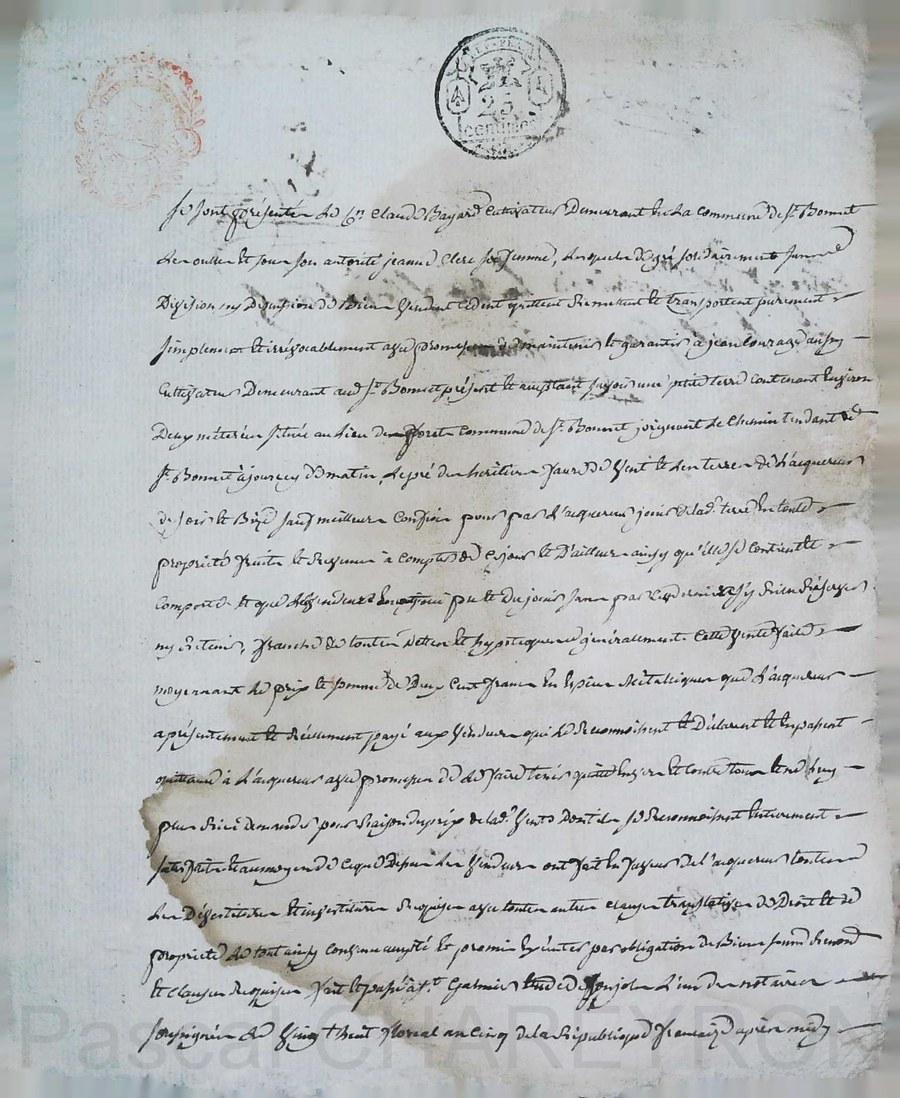 25
centimes
Se sont présentés le Cn Claude Bayard Cultivateur Demeurant en La Commune de St Bonnet
Les oulles et sous son autorité jeanne Clerc sa femme, Lesquels de gré solidairement sans
Division ny Discution de Biens Vendent cedent quittent remettent et transportent purement
simplement et irrévocablement avec promesse de maintenir et garantir à jean Courage aussy
Cultivateur Demeurant aud. St Bonnet présent et acceptant sçavoir une petite terre contenant Environ
Deux méterées située au lieu de Commune de St Bonnet joignant Le Chemin tendant de
St Bonnet à jourcey de matin, Le pré des heritiers faure de Vent et Les terres de L'acquereur
de soir et Bize sauf meilleurs Confins pour par L'acquereur jouir de lad. terre En toute
propriété fruits et revenus à Compter de Ce jour et D'ailleurs ainsy qu'elle se Contient et
Comporte et que Les Vendeurs En ont joui pu et du jouir sans par Ces derniers s'y Rien Réserver
ny Retenir, franche de toutes Dettes et hypotèques généralement Cette Vente faite
moyennant Le prix et somme de Deux Cent francs En Espèces Métalliques que L'acquereur
a présentement et réellement payé aux Vendeurs qui Le Reconnoissent et Déclarent et En passent
quittance à L'acquereur avec promesse de Le faire tenir quitte Envers et Contre tous et ne luy
plus Rien Demander pour Raison du prix de lad. Vente Dont ils se Reconnoissent Entierement
satisfaits et au moyen de Ce que Dessus Les Vendeurs ont fait En faveur de L'acquereur toutes
Les Dévestitures et investitures Requises avec toutes autres clauses translatives de Droit et de
propriété Le tout ainsy Convenu accepté et promis Exécuter par obligation de Biens soum. Renon.
et Clauses Requises fait et passé à St Galmier Etude de Ponjol L'un des notaires
soussignés Le Vingt huit floréal an Cinq de La République française après midy
Pascal CHAREYRON